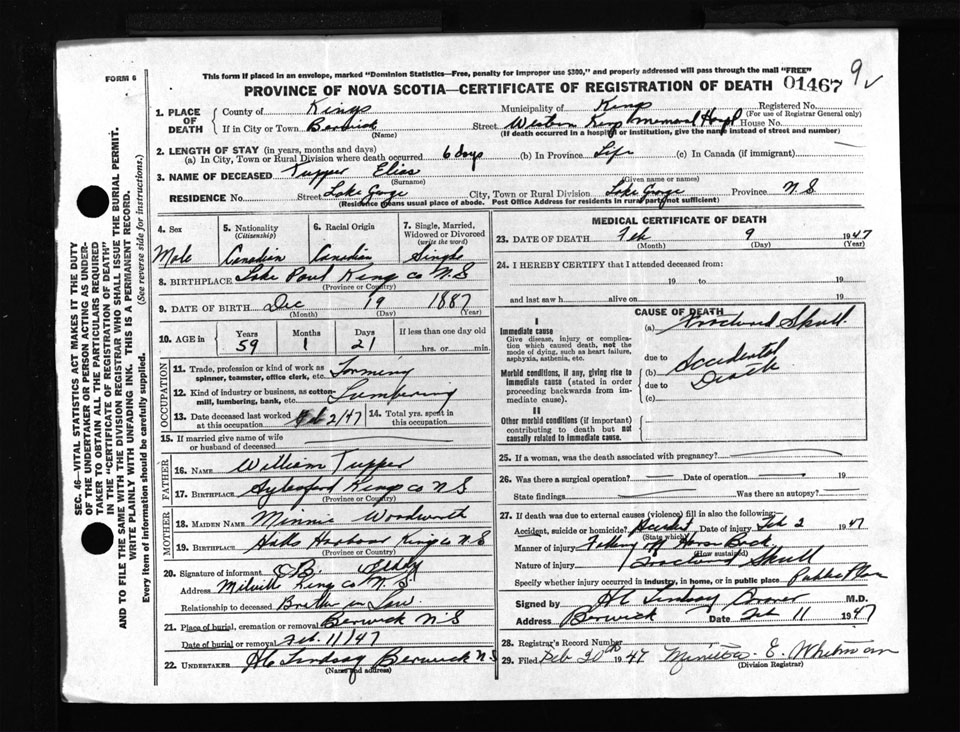 FORM 6
This form if placed in an envelope, marked "Dominion Statistics—Free, penalty for improper use $300," and properly addressed will pass through the mail "FREE"
9
PROVINCE OF NOVA SCOTIA—CERTIFICATE OF REGISTRATION OF DEATH 01467
1. PLACE OF DEATH County of Kings Municipality of Kings Registered No.
(For use of Registrar General only)
If in City or Town Berwick Street Western Kings Memorial Hospl House No.
(Name) (If death occurred in a hospital or institution, give the name instead of street and number)
2. LENGTH OF STAY (in years, months and days)
(a) In City, Town or Rural Division where death occurred 6 days (b) In Province Life (c) In Canada (if immigrant)
3. NAME OF DECEASED Tupper Elias
(Surname) (Given name or names)
RESIDENCE No. Street Lake George City, Town or Rural Division Lake George Province N S
(Residence means usual place of abode. Post Office Address for residents in rural parts not sufficient)
SEC. 46—VITAL STATISTICS ACT MAKES IT THE DUTY
OF THE UNDERTAKER OR PERSON ACTING AS UNDER-
TAKER TO OBTAIN ALL THE PARTICULARS REQUIRED
IN THE "CERTIFICATE OF REGISTRATION OF DEATH"
AND TO FILE THE SAME WITH THE DIVISION REGISTRAR WHO SHALL ISSUE THE BURIAL PERMIT.
WRITE PLAINLY WITH UNFADING INK. THIS IS A PERMANENT RECORD.
Every item of Information should be carefully supplied. (See reverse side for instructions.)
4. Sex 5. Nationality (Citizenship) 6. Racial Origin 7. Single, Married, Widowed or Divorced (write the word)
Male Canadian Canadian Single
8. BIRTHPLACE Lake Paul Kings co N.S
(Province or Country)
9. DATE OF BIRTH Dec 19 1887
(Month) (Day) (Year)
10. AGE in Years 59 Months 1 Days 21 If less than one day old hrs. or min.
OCCUPATION
11. Trade, profession or kind of work as spinner, teamster, office clerk, etc. Farming
12. Kind of industry or business, as cotton-mill, lumbering, bank, etc. Lumbering
13. Date deceased last worked at this occupation Feb 2/47 14. Total yrs. spent in this occupation
15. If married give name of wife or husband of deceased
FATHER
16. NAME William Tupper
17. BIRTHPLACE Aylesford Kings co N S
(Province or Country)
MOTHER
18. MAIDEN NAME Minnie Woodworth
19. BIRTHPLACE Halls Harbour Kings co N.S
(Province or Country)
20. Signature of informant Eddy
Address Melville Kings co N. S.
Relationship to deceased Brother in Law
21. Place of burial, cremation or removal Berwick N S
Date of burial or removal Feb. 11/47
22. UNDERTAKER Lindsay Berwick N S
(Name and address)
MEDICAL CERTIFICATE OF DEATH
23. DATE OF DEATH Feb 9 1947
(Month) (Day) (Year)
24. I HEREBY CERTIFY that I attended deceased from:
19 to 19
and last saw h alive on 19
CAUSE OF DEATH
I
Immediate cause
Give disease, injury or complication which caused death, not the mode of dying, such as heart failure, asphyxia, asthenia, etc.
(a) Fractured Skull
due to
Morbid conditions, if any, giving rise to immediate cause (stated in order proceeding backwards from immediate cause).
(b) Accidental
due to Death
(c)
II
Other morbid conditions (if important) contributing to death but not causally related to immediate cause.
25. If a woman, was the death associated with pregnancy?
26. Was there a surgical operation? Date of operation 19
State findings Was there an autopsy?
27. If death was due to external causes (violence) fill in also the following:
Accident, suicide or homicide? Accident Date of injury Feb 2 1947
(State which)
Manner of injury Falling off Horse Back
(How sustained)
Nature of injury Fractured Skull
Specify whether injury occurred in industry, in home, or in public place Public Place
Signed by M.D.
Address Berwick Date Feb 11 1947
28. Registrar's Record Number
29. Filed Feb 20th 1947 E. Whitman
(Division Registrar)